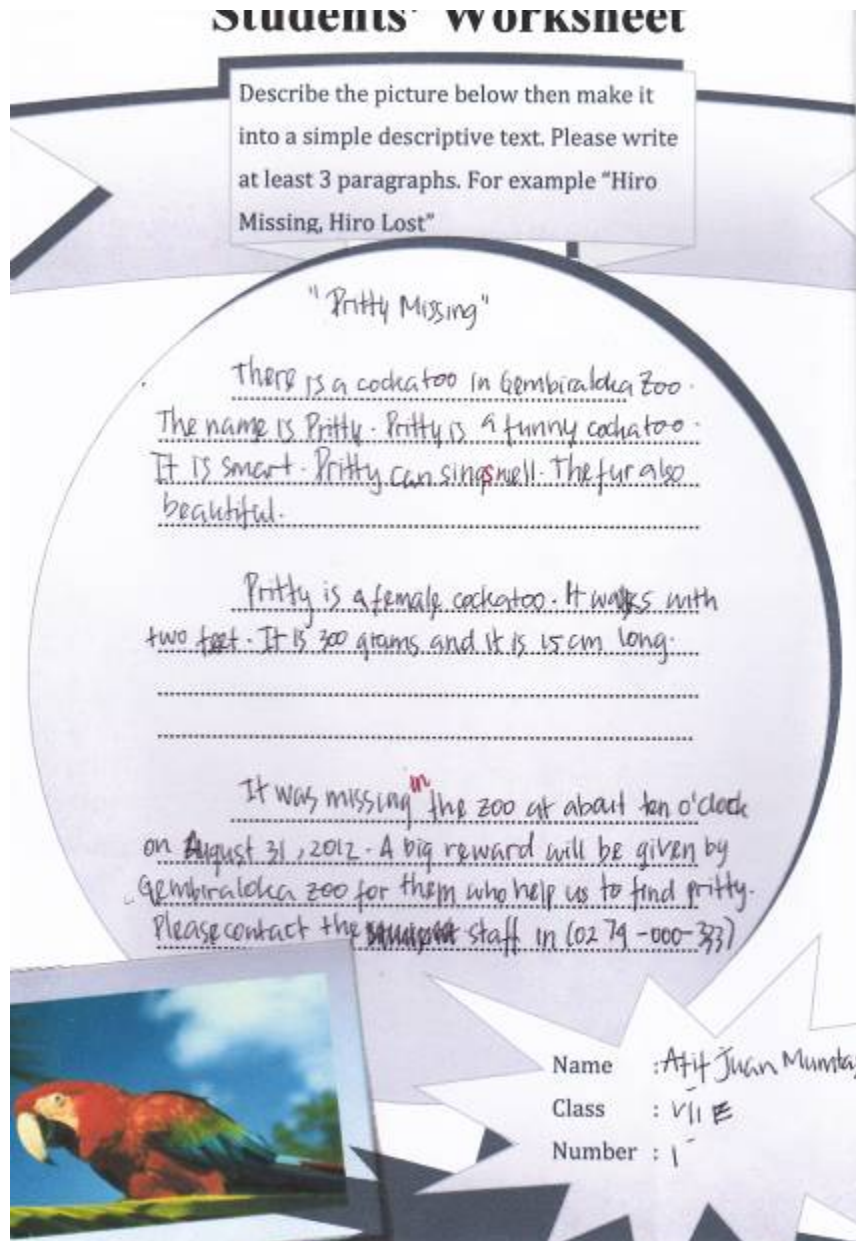 Students' Worksheet
Describe the picture below then make it
into a simple descriptive text. Please write
at least 3 paragraphs. For example “Hiro
Missing, Hiro Lost”
"Pritty Missing"
There is a cockatoo in Gembiraloka Zoo.
The name is Pritty. Pritty is a funny cockatoo.
It is smart. Pritty can sings well. The fur also
beautiful.
Pritty is a female cockatoo. It walks with
two feet. It is 300 grams and it is 15 cm long.
It was missing in the zoo at about ten o'clock
on August 31, 2012. A big reward will be given by
Gembiraloka zoo for them who help us to find pritty.
Please contact the staff in (0274-000-333)
Name : Atif Juan Mumtaz
Class : VII E
Number : 1